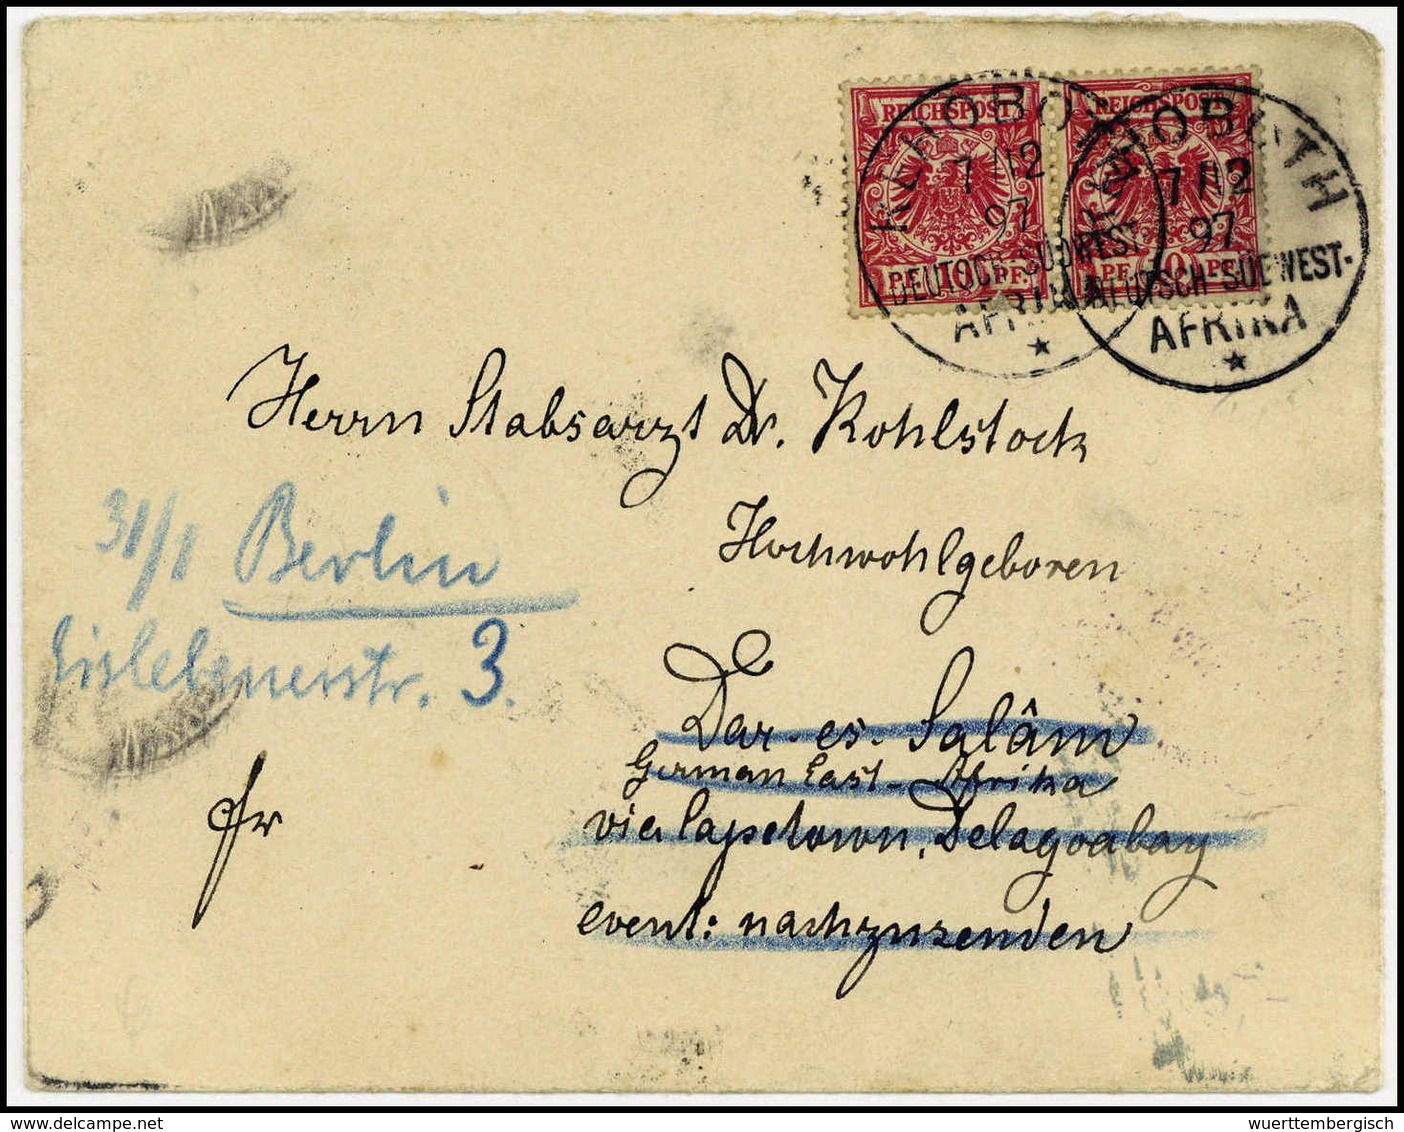 REICHSPOST REICHSPOST
10 PF. 10 PF.
PF. 10 PF.
REHOBOTH
7/12
97
DEUTSCH-SÜDWEST-
AFRIKA
REHOBOTH
7/12
97
DEUTSCH-SÜDWEST-
AFRIKA
Herrn Stabsarzt Dr. Kohlstock
Hochwohlgeboren
31/1 Berlin
Eislebenerstr. 3.
Dar-es-Salâm
German East-Afrika
via Capetown, Delagoabay
event: nachzusenden
fr
wuerttembergisch